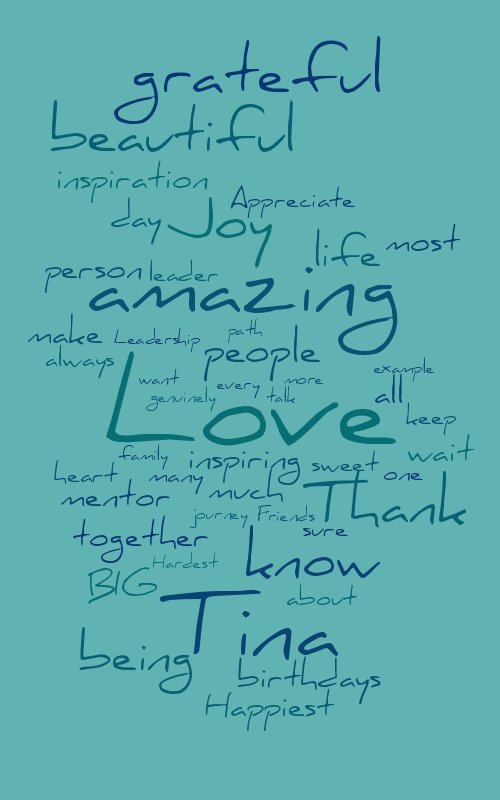 grateful
beautiful
inspiration
Appreciate
day Joy
life most
person leader
amazing
make Leadership path
always people
want every more example
genuinely talk all
Love keep
family inspiring sweet wait
heart many much one
mentor Thank
journey Friends
together sure
Hardest know
BIG about
Tina
being birthdays
Happiest